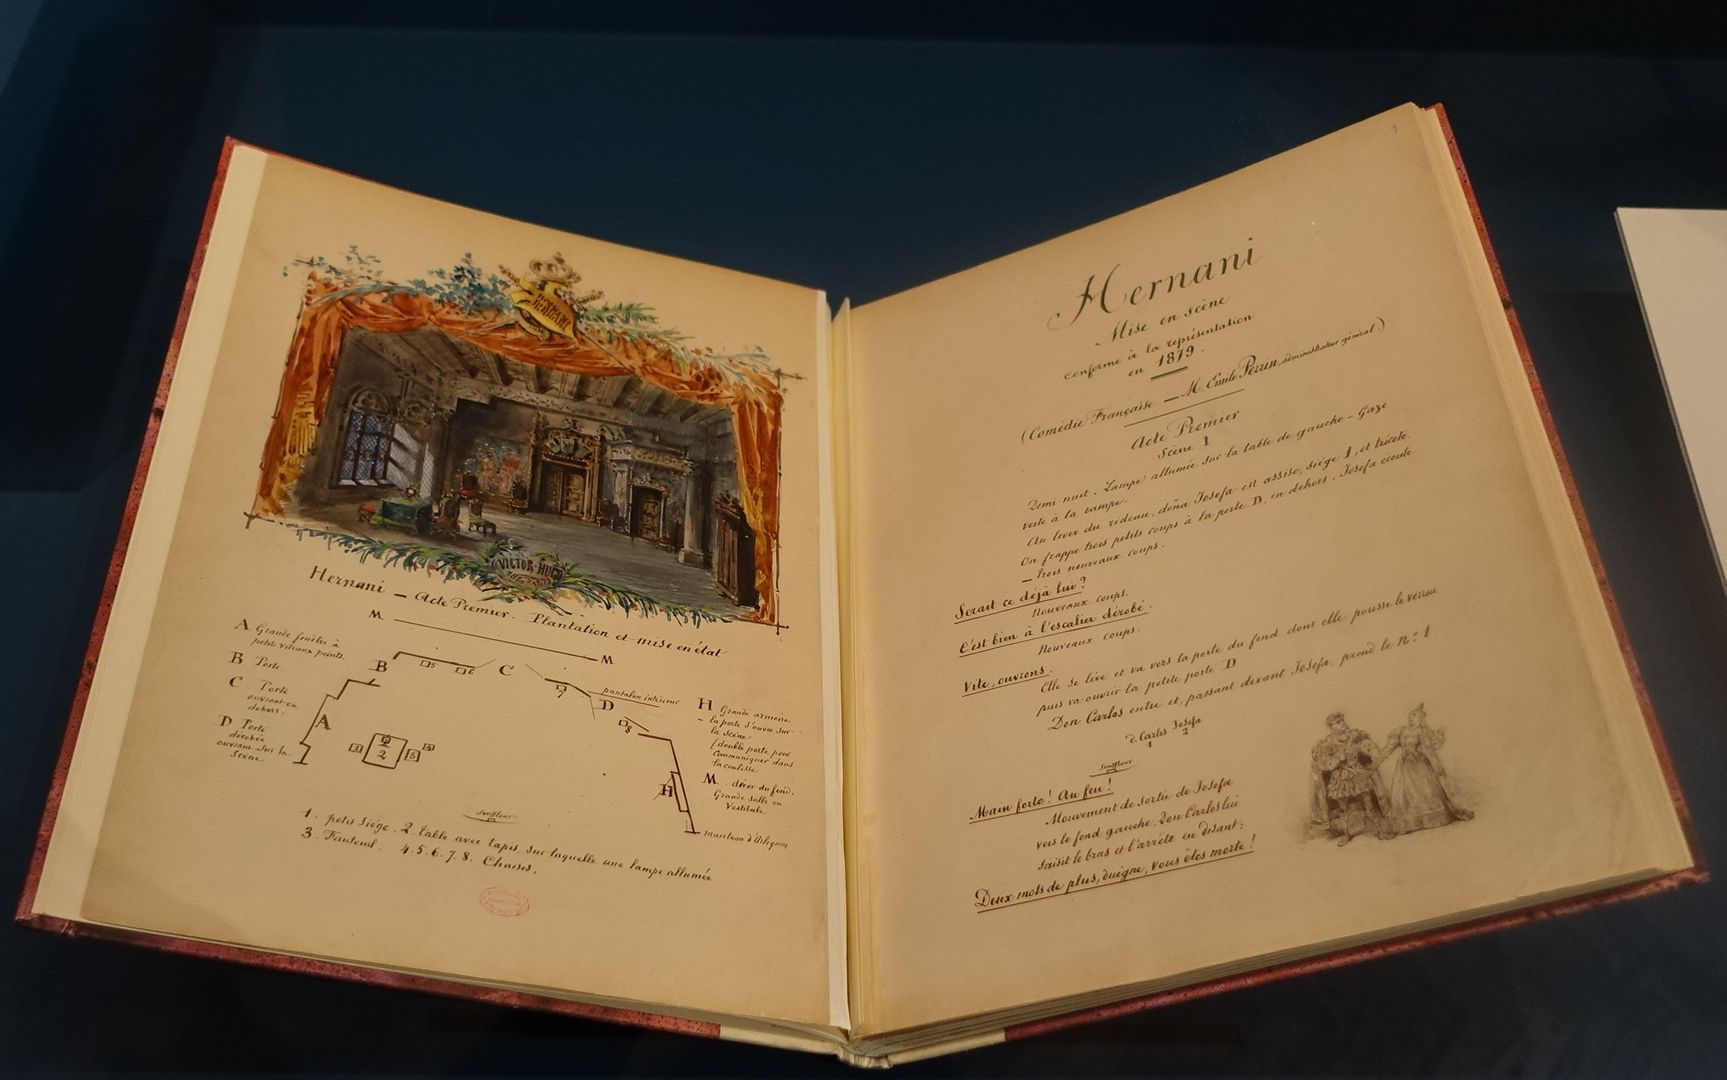 VICTOR-HUGO
Hernani — Acte Premier. Plantation et mise en état
M
M
A Grande fenêtre à
petits vitraux peints.
B Porte
C - Porte
ouvrant en
dehors.
D Porte
dérobée
ouvrant sur la
Scène
B
5
6
C
7
pantalon intérieur
D
8
A
1
2
3
4
H
H Grande armoire
- la porte s'ouvre sur
la scène
(double porte pour
communiquer dans
la coulisse
M - décor du fond.
Grande Salle ou
Vestibule
manteau d'Arlequin
Souffleur
1. petit Siège. 2. table avec tapis, sur laquelle une lampe allumée
3. Fauteuil. 4, 5, 6, 7, 8, Chaises.
1
Hernani
Mise en scène
conforme à la représentation
en 1879.
(Comédie Française — M. Emile Perrin, administrateur général.)
Acte Premier
Scène I
Demi nuit. Lampe allumée sur la table de gauche - Gaze
verte à la rampe.
Au lever du rideau, doña Josefa est assise, siège 1, et tricote.
On frappe trois petits coups à la porte D, en dehors. Josefa écoute.
— trois nouveaux coups.
Serait ce déjà lui?
Nouveaux coups.
C'est bien à l'escalier dérobé.
Nouveaux coups.
Vite, ouvrons.
Elle se lève et va vers la porte du fond dont elle pousse le verrou
puis va ouvrir la petite porte D
Don Carlos entre et, passant devant Josefa, prend le n° 1
d. Carlos Josefa
1 2
Souffleur
Main forte! Au feu!
Mouvement de sortie de Josefa
vers le fond gauche. Don Carlos lui
saisit le bras et l'arrête en disant:
Deux mots de plus, duègne, vous êtes morte!